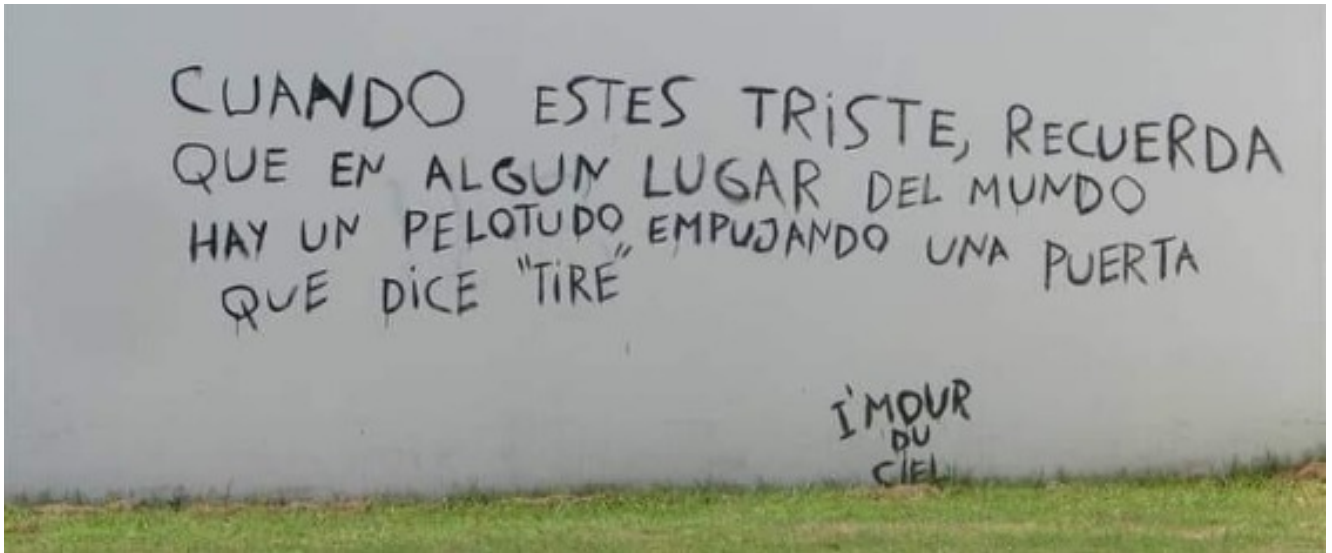 CUANDO ESTES TRISTE, RECUERDA
QUE EN ALGUN LUGAR DEL MUNDO
HAY UN PELOTUDO EMPUJANDO UNA PUERTA
QUE DICE "TIRE"
I'MOUR
DU
CIEL